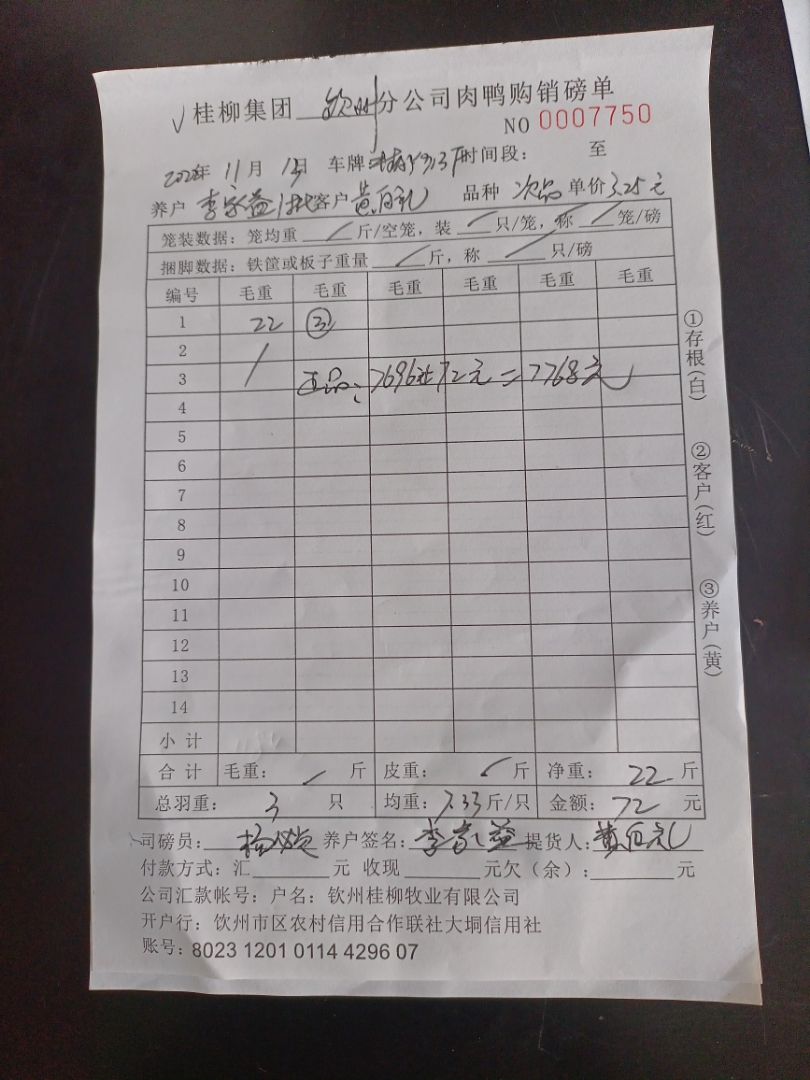 桂柳集团 钦州 分公司肉鸭购销磅单
NO 0007750
11月 13日 车牌 时间段： 至
养户 李家益 客户 黄百礼 品种 次品 单价 3.25 元
笼装数据：笼均重 / 斤/空笼，装 / 只/笼，称 / 笼/磅
捆脚数据：铁筐或板子重量 / 斤，称 / 只/磅
编号 毛重 毛重 毛重 毛重 毛重 毛重
1 22 ③
2
3 正品：7696元 72元=7768元
4
5
6
7
8
9
10
11
12
13
14
小计
合计 毛重： / 斤 皮重： / 斤 净重： 22 斤
总羽重： 3 只 均重：7.33斤/只 金额： 72 元
司磅员： 养户签名：李家益 提货人：黄百礼
付款方式：汇 元 收现 元欠（余）： 元
公司汇款帐号：户名：钦州桂柳牧业有限公司
开户行：钦州市区农村信用合作联社大垌信用社
账号：8023 1201 0114 4296 07
①存根（白） ②客户（红） ③养户（黄）